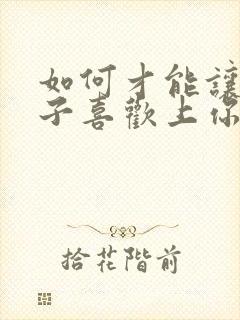 如何才能讓
子喜歡上你
拾花階前